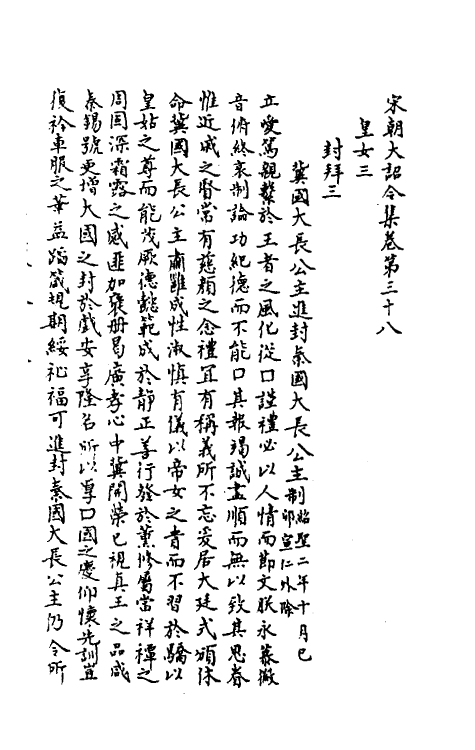 宋朝大詔令集卷第三十八
皇女三
封拜三
冀國大長公主進封秦國大長公主制紹聖二年十月己卯宣仁外除
立愛篤親繫於王者之風化從口證禮必以人情而節文朕永慕徽
音俯終哀制論功紀德而不能口其報竭誠盡順而無以致其思眷
惟近戚之賢常有慈顏之念禮宜有稱義所不忘爰居大廷式頒休
命冀國大長公主肅雝成性淑慎有儀以帝女之貴而不習於驕以
皇姑之尊而能茂厥德懿範成於靜正善行發於薰修屬當祥禫之
周固深霜露之感匪加褒册曷廣孝心中冀開榮已視真王之品咸
秦錫號更增大國之封於戲安享隆名所以厚口國之慶仰懷先訓豈
須衿車服之華益蹈箴規期綏祉福可進封秦國大長公主仍令所